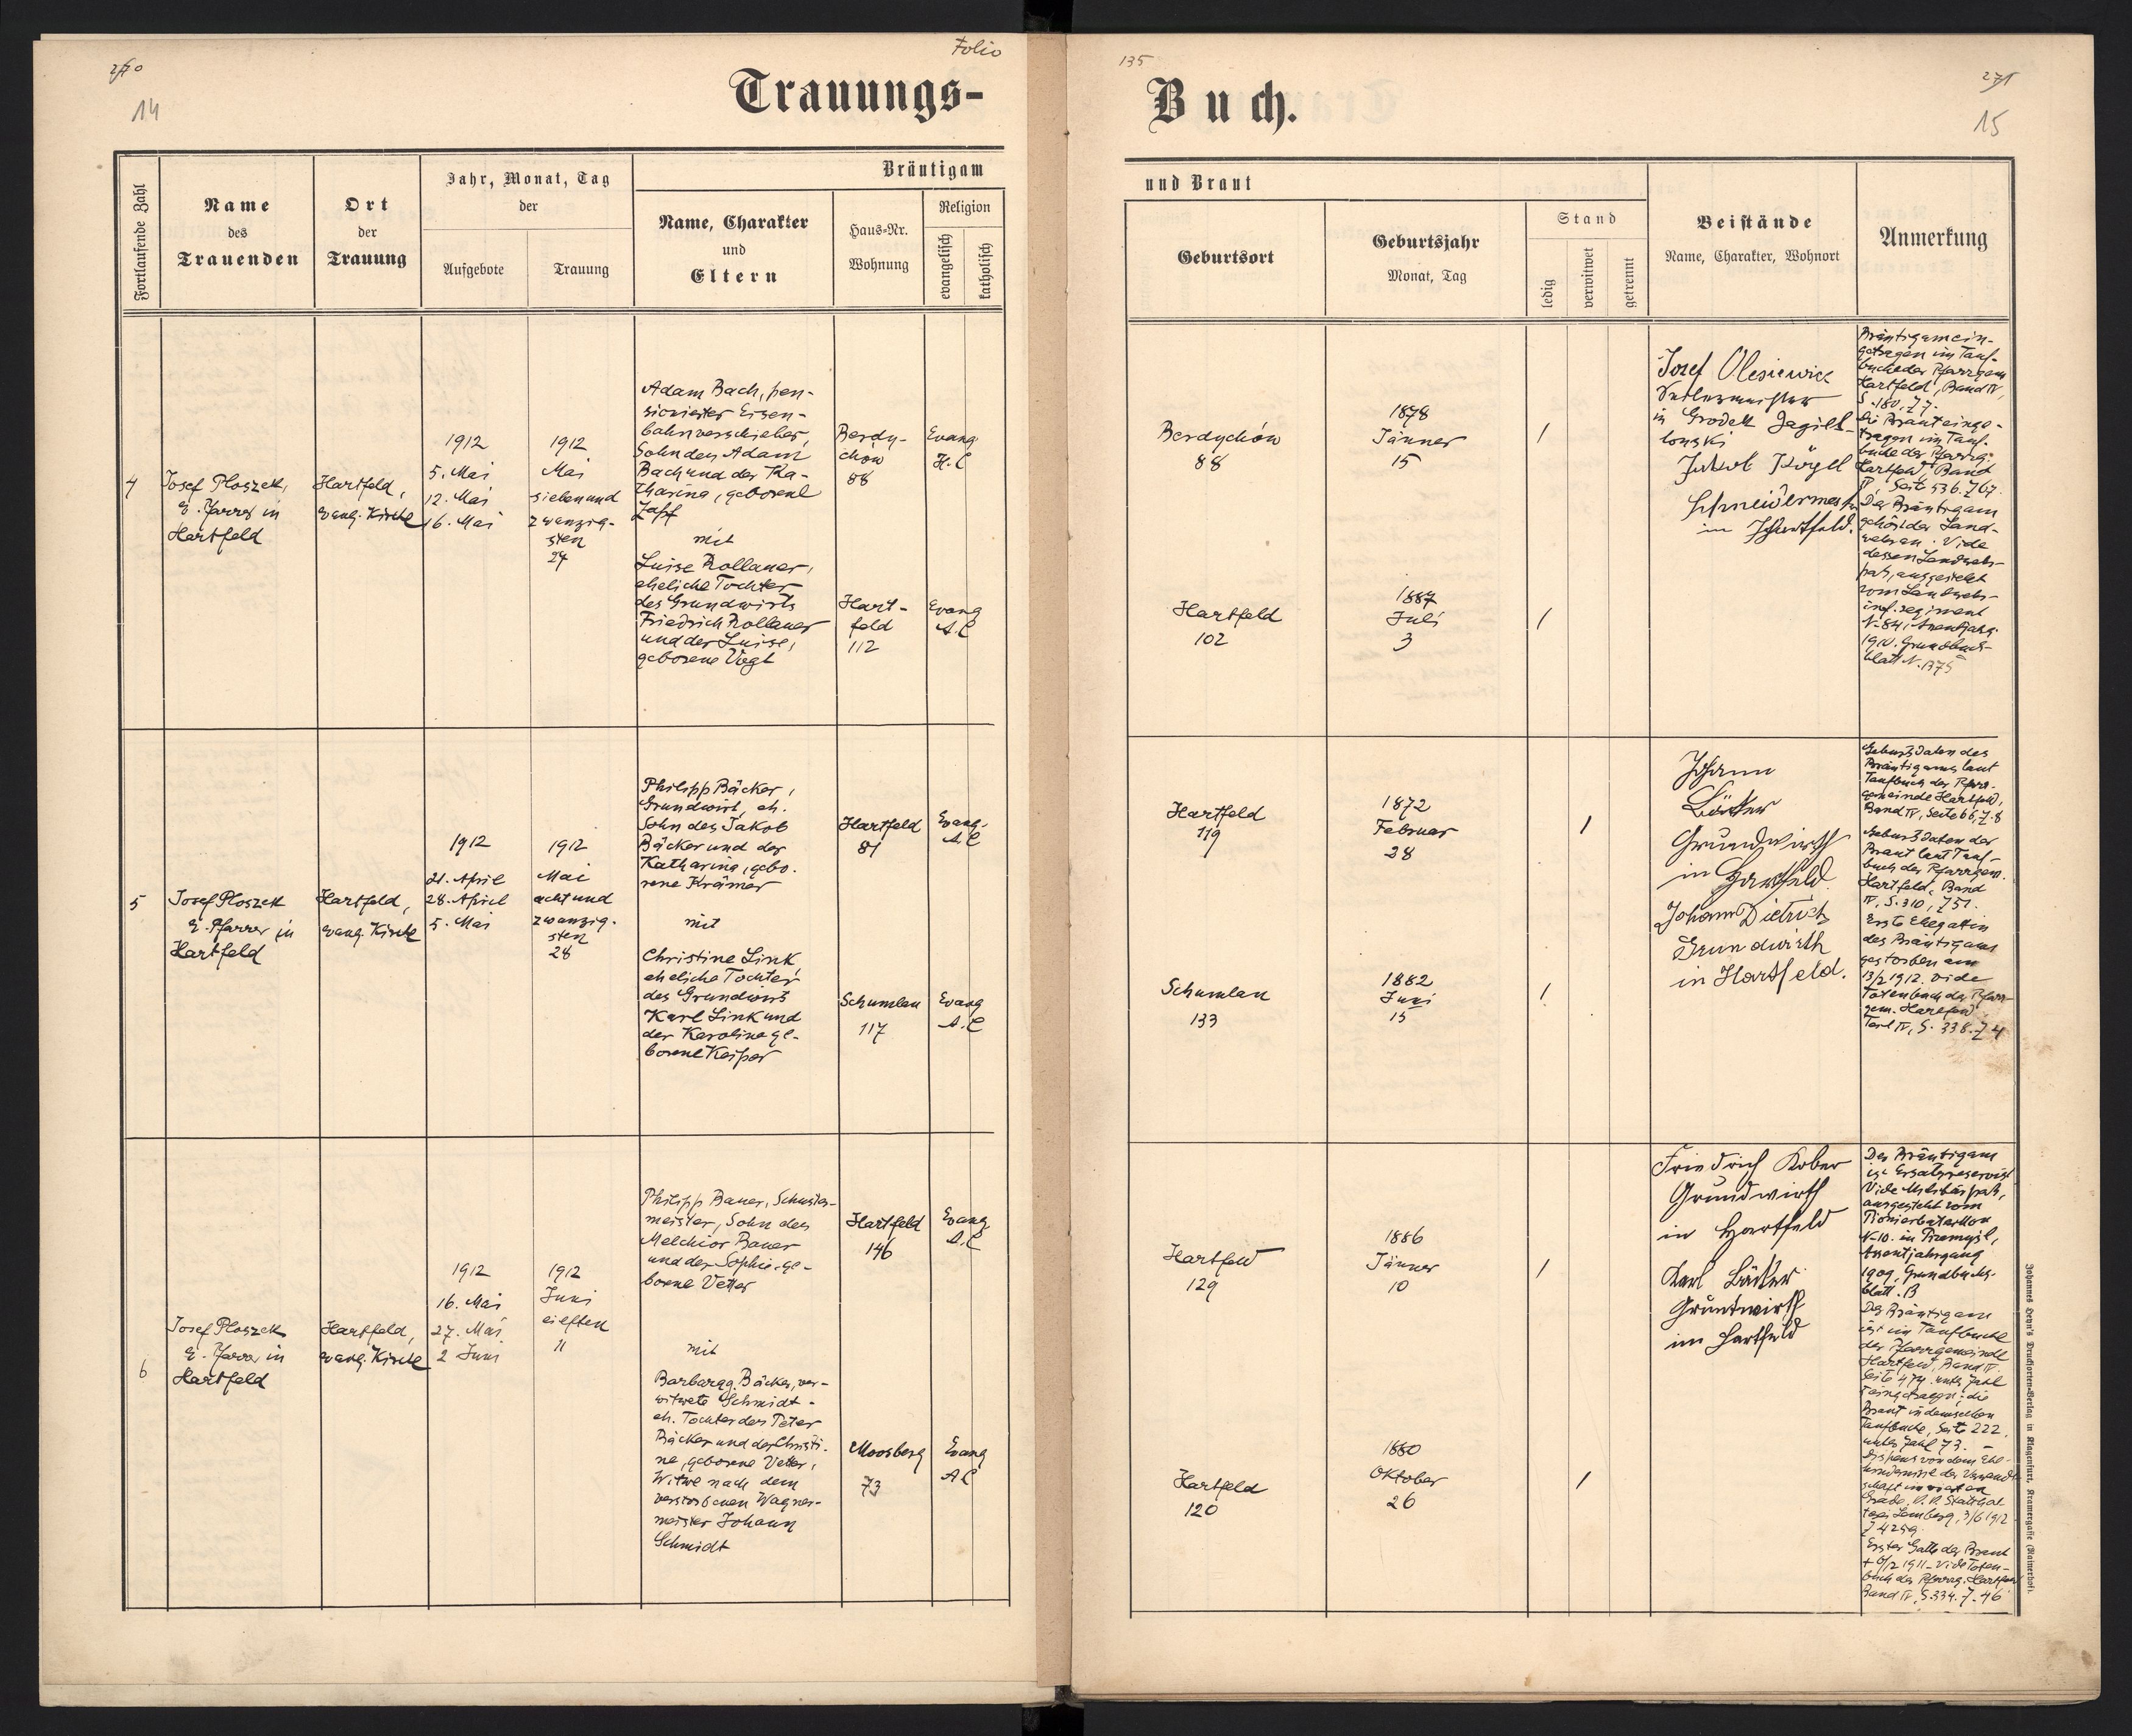 270
Folio
14
Trauungs-
Fortlaufende Zahl
Name
des
Trauenden
Ort
der
Trauung
Jahr, Monat, Tag
der
Aufgebote
Trauung
Bräutigam
Name, Charakter
und
Eltern
Haus-Nr.
Wohnung
Religion
evangelisch
katholisch
4
Josef Ploszek,
E. Pfarrer in
Hartfeld
Hartfeld,
evang. Kirche
1912
5. Mai
12. Mai
16. Mai
1912
Mai
siebenund
zwanzig-
sten
27
Adam Bach, pen-
sionierter Eisen-
bahnverschieber,
Sohn des Adam
Bach und der Ka-
tharina, geborene
Zapf
mit
Luise Rollauer,
eheliche Tochter
des Grundwirts
Friedrich Rollauer
und der Luise,
geborene Vogt
Berdy-
chów
88
Evang
H. C
Hart-
feld
112
Evang
A. C
5
Josef Ploszek
E. Pfarrer in
Hartfeld
Hartfeld,
evang. Kirche
1912
21. April
28. April
5. Mai
1912
Mai
achtund
zwanzig-
sten
28
Philipp Bäcker,
Grundwirt, eh.
Sohn des Jakob
Bäcker und der
Katharina, gebo-
rene Krämer
mit
Christine Link
eheliche Tochter
des Grundwirts
Karl Link und
der Karoline ge-
borene Kaspar
Hartfeld
81
Evang.
A. C
Schumlau
117
Evang
A. C
6
Josef Ploszek
E. Pfarrer in
Hartfeld
Hartfeld,
evang. Kirche
1912
16. Mai
27. Mai
2 Juni
1912
Juni
eilften
11
Philipp Bauer, Schuster-
meister, Sohn des
Melchior Bauer
und der Sophie, ge-
borene Vetter
mit
Barbara Bäcker, ver-
witwete Schmidt -
eh. Tochter des Peter
Bäcker und der Christi-
ne, geborene Vetter,
Witwe nach dem
verstorbenen Wagner-
meister Johann
Schmidt
Hartfeld
146
Evang
A. C
Moosberg
73
Evang
A C
135
271
Buch.
15
und Braut
Geburtsort
Geburtsjahr
Monat, Tag
Stand
ledig
verwitwet
getrennt
Beistände
Name, Charakter, Wohnort
Anmerkung
Berdychów
88
1878
Jänner
15
/
Hartfeld
102
1887
Juli
3
/
Josef Olesiewicz
Sattlermeister
in Grodek Jagiel-
lonski
Jakob Kögel
Schneidermeister
in Hartfeld.
Bräutigam ein-
getragen im Tauf-
buche der Pfarrgem
Hartfeld, Band IV,
S. 180, Z 7.
Die Braut einge-
tragen im Tauf-
buche der Pfarrg.
Hartfeld, Band
IV, Seite 536. Z 67.
Der Bräutigam
gehört der Land-
wehr an. Vide
dessen Landwehr-
paß, ausgestellt
vom Landwehr-
inf. regiment
N. 84, Assentjahrg.
1910. Grundbuch-
blatt N. 1375
Hartfeld
119
1872
Februar
28
/
Schumlau
133
1882
Juni
15
/
Johann
Bäcker
Grundwirth
in Hartfeld.
Johann Dietrich
Grundwirth
in Hartfeld.
Geburtsdaten des
Bräutigams laut
Taufbuch der Pfarr-
gemeinde Hartfeld,
Band IV, Seite 66, Z. 8
Geburtsdaten der
Braut laut Tauf-
buch der Pfarrgem.
Hartfeld, Band
IV, S. 310, Z 51.
Erste Ehegattin
des Bräutigams
gestorben am
13/2 1912. Vide
Totenbuch der Pfarr-
gem. Hartfeld
Teil IV, S. 338. Z 4
Hartfeld
129
1886
Jänner
10
/
Hartfeld
120
1880
Oktober
26
/
Friedrich Kober
Grundwirth
in Hartfeld
Karl Bäcker
Gruntwirth
im Hartfeld
Der Bräutigam
ist Ersatzreservist
Vide Militärpaß,
ausgestellt vom
Pionierbataillon
N-10. in Przemyśl,
Assentjahrgang
1909, Grundbuchs-
blatt. 13
Der Bräutigam
ist im Taufbuche
der Pfarrgemeinde
Hartfeld, Band IV.
Seite 474. unter Zahl
7 eingetragen; die
Braut in demselben
Taufbuche, Seite 222,
unter Zahl 73. -
Dispens von dem Ehe-
hindernisse der Verwandt-
schaft im vierten
Grade, k. k. Statthal-
terei Lemberg, 3/6 1912
Z 4259.
Erster Gatte der Braut
+ 6/2 1911 - Vide Toten-
buch der Pfarrg. Hartfeld
Band IV, S. 334. Z. 46
Johannes Heyn's Drucksorten-Verlag in Klagenfurt, Kramergasse (Rainerhof).